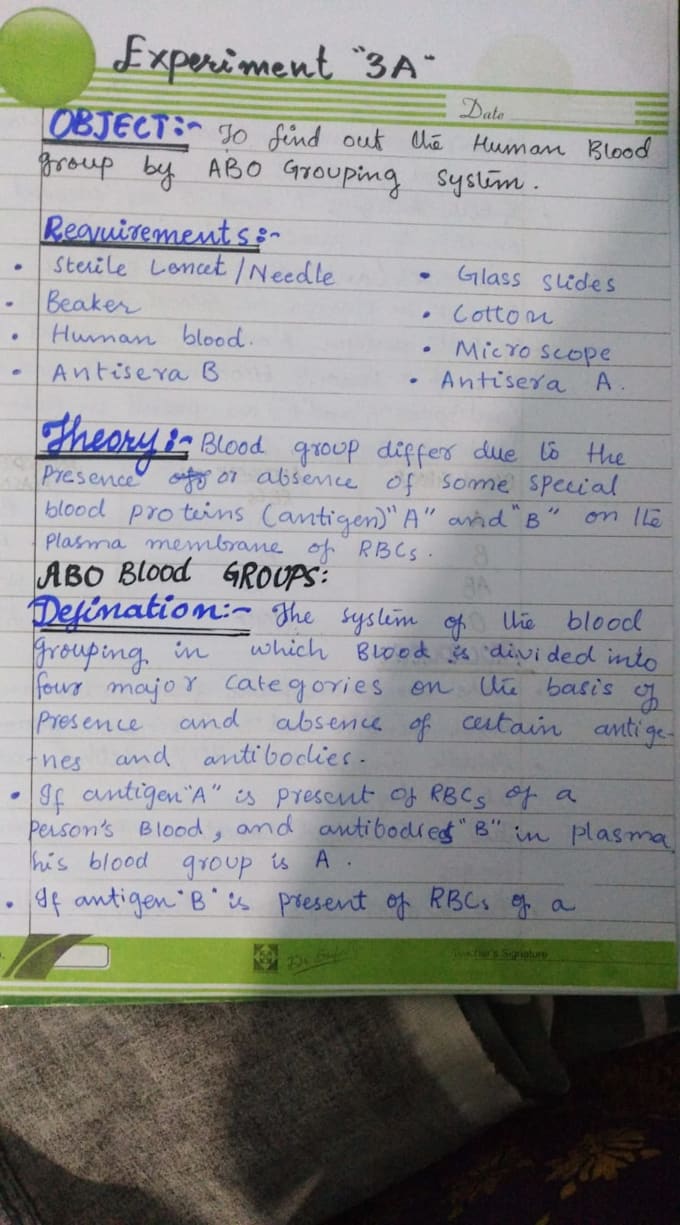 Experiment "3A"
Date
OBJECT:- To find out the Human Blood
group by ABO Grouping system.
Requirements:-
• Sterile Loncet/Needle
• Glass slides
• Beaker
• Cotton
• Human blood.
• Microscope
• Antisera B
• Antisera A.
Theory:- Blood group differ due to the
Presence or absence of some special
blood proteins (antigen)"A" and "B" on the
Plasma membrane of RBCs.
ABO Blood GROUPS:
Defination:- The system of the blood
grouping in which Blood is divided into
four major categories on the basis of
Presence and absence of certain antige-
-nes and antibodies.
• If antigen "A" is present of RBCs of a
Person's Blood, and antibodies "B" in plasma
his blood group is A.
• If antigen "B" is present of RBCs of a
Teacher's Signature